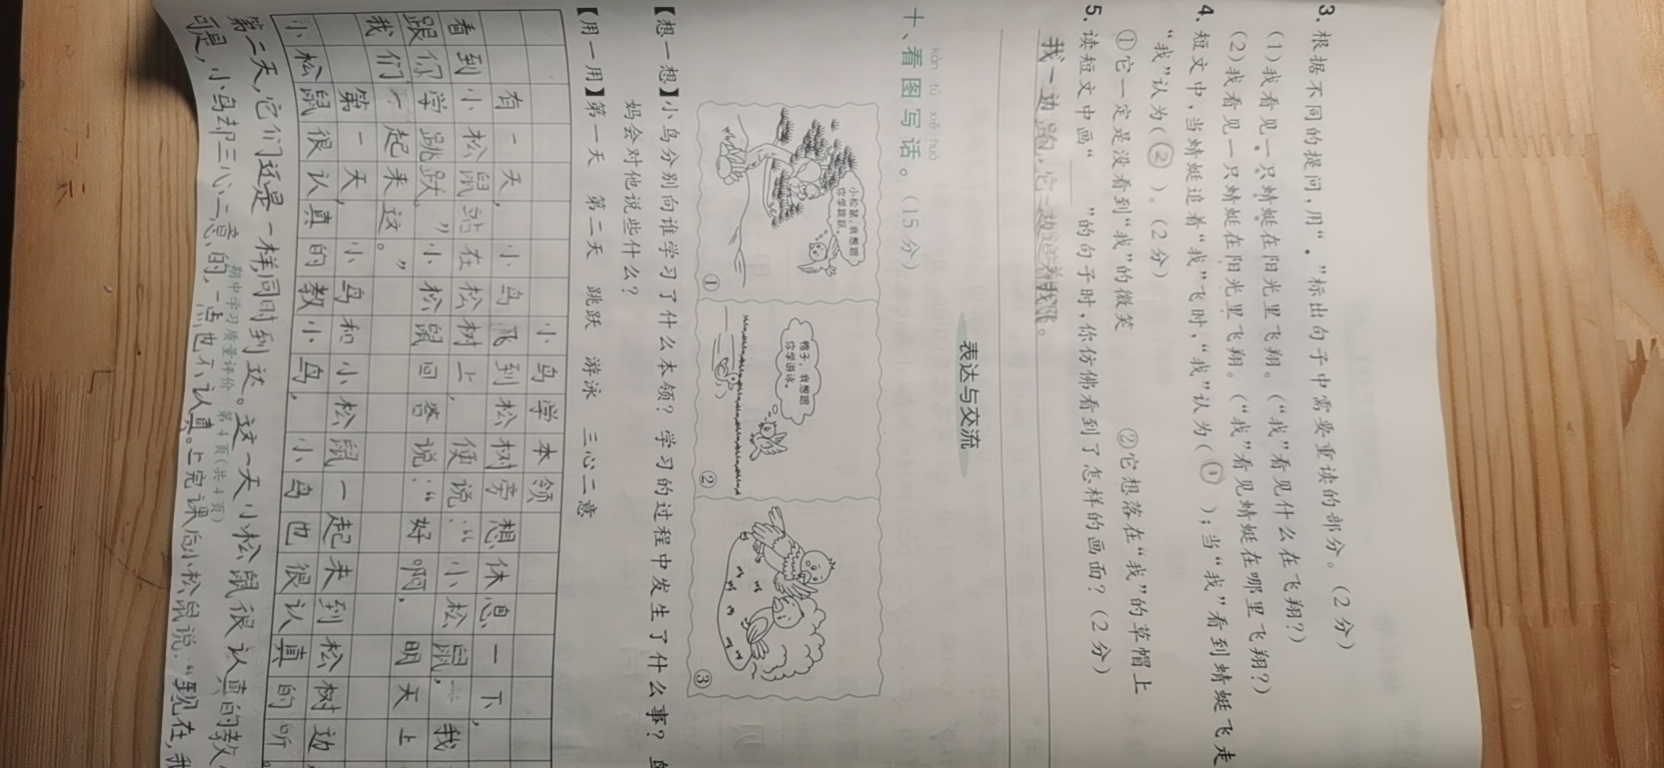 3. 根据不同的提问，用“．”标出句子中需要重读的部分。（2分）
(1)我看见一只蜻蜓在阳光里飞翔。（“我”看见什么在飞翔?）
(2)我看见一只蜻蜓在阳光里飞翔。（“我”看见蜻蜓在哪里飞翔?）
4. 短文中，当蜻蜓追着“我”飞时，“我”认为(①)；当“我”看到蜻蜓飞走
“我”认为(②)。（2分）
①它一定是没看到“我”的微笑 ②它想落在“我”的草帽上
5. 读短文中画“ ”的句子时，你仿佛看到了怎样的画面?（2分）
我一边跑，它一边追着我飞。
表达与交流
kàn tú xiě huà
十、看图写话。（15分）
小松鼠，我想跟你学跳跃。
①
鸭子，我想跟你学游泳。
②
③
【想一想】小鸟分别向谁学习了什么本领？学习的过程中发生了什么事？
妈会对他说些什么？
【用一用】第一天 第二天 跳跃 游泳 三心二意
小鸟学本领
有一天，小鸟飞到松树旁想休息一下，
看到小松鼠站在松树上，便说：“小松鼠，我
跟你学跳跃。”小松鼠回答说：“好啊，明天上
我们一起来这。”
第一天，小鸟和小松鼠一起来到松树边
小松鼠很认真的教小鸟，小鸟也很认真的听
第二天，它们还是一样同时到达。这一天小松鼠很认真的教
可是，小鸟却三心二意的，一点也不认真。上完课后小松鼠说：“现在，我
期中学习质量评价 第4页(共4页)